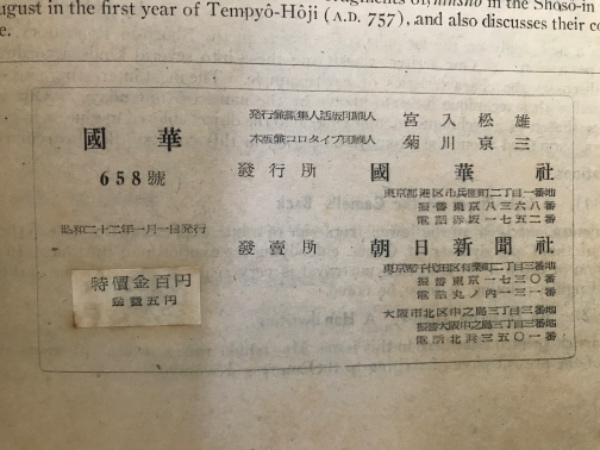 August in the first year of Tempyô-Hôji (A.D. 757), and also discusses their
國華
658號
昭和二十二年一月一日発行
特價金百円
送費五円
発行兼編集人活版印刷人 宮入松雄
木版兼コロタイプ印刷人 菊川京三
發行所 國華社
東京都港区市兵衛町二丁目一番地
振替東京八三六八番
電話赤坂一七五二番
發賣所 朝日新聞社
東京都千代田区有楽町二丁目三番地
振替東京一七三〇番
電話丸ノ内一三一番
大阪市北区中之島三丁目三番地
振替大阪中之島三丁目三番
電話北浜三五〇一番